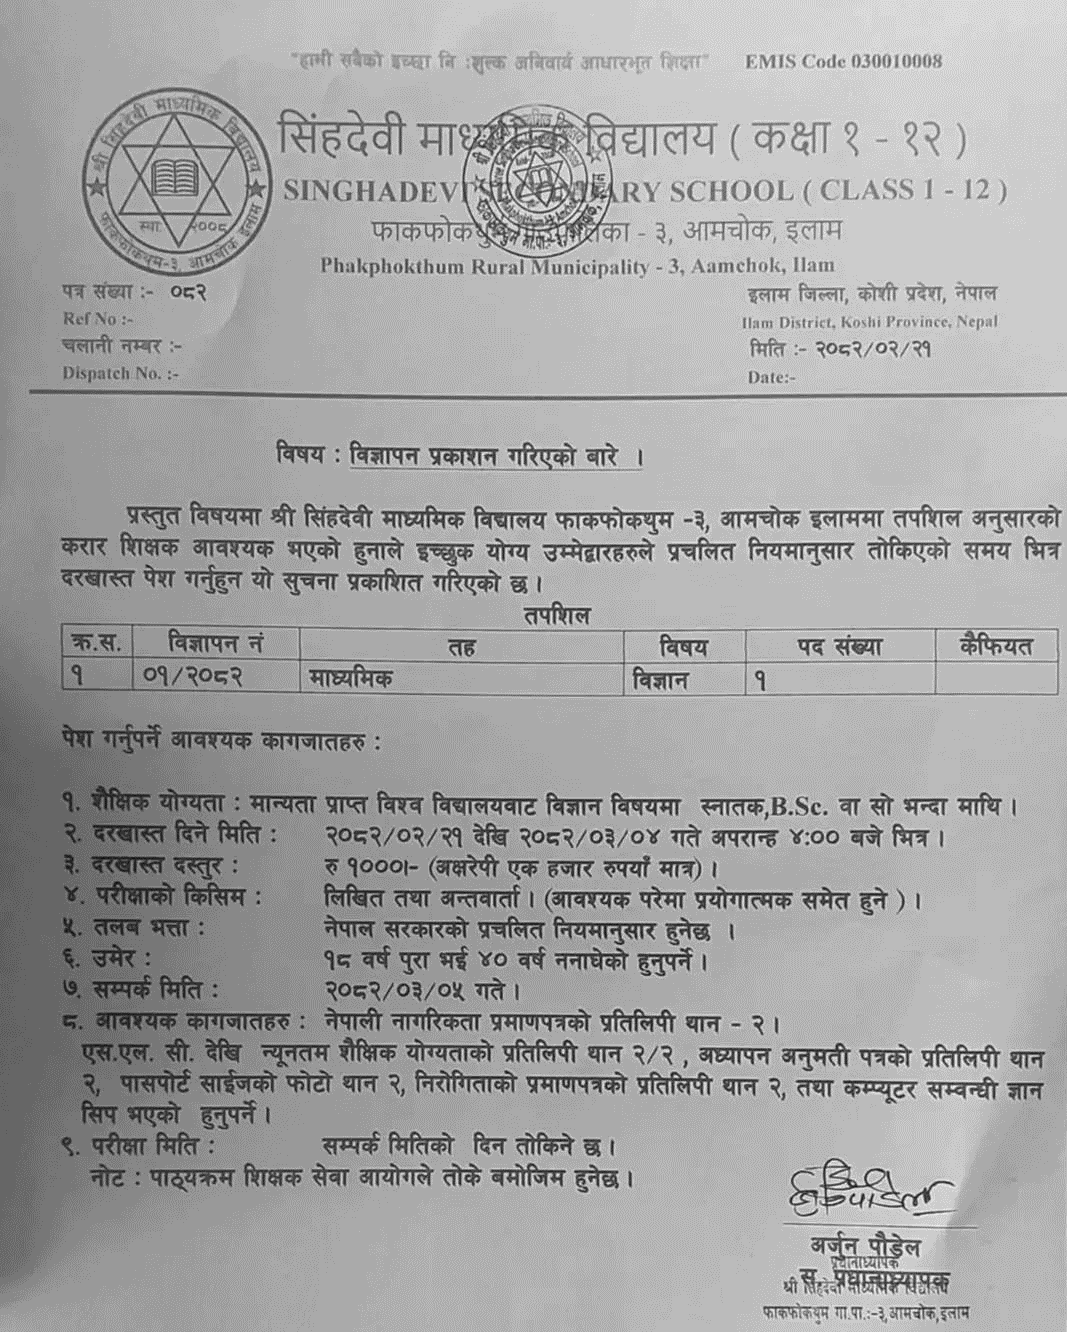 "हामी सबैको इच्छा नि :शुल्क अनिवार्य आधारभूत शिक्षा" EMIS Code 030010008
श्री सिंहदेवी माध्यमिक विद्यालय
स्था. २००८
फाकफोकथुम-३, आमचोक इलाम
सिंहदेवी माध्यमिक विद्यालय ( कक्षा १ - १२ )
SINGHADEVI SECONDARY SCHOOL ( CLASS 1 - 12 )
फाकफोकथुम गाउँपालिका - ३, आमचोक, इलाम
Phakphokthum Rural Municipality - 3, Aamchok, Ilam
पत्र संख्या :- ०८२ इलाम जिल्ला, कोशी प्रदेश, नेपाल
Ref No :- Ilam District, Koshi Province, Nepal
चलानी नम्बर :- मिति :- २०८२/०२/२१
Dispatch No. :- Date:-
विषय : विज्ञापन प्रकाशन गरिएको बारे ।
प्रस्तुत विषयमा श्री सिंहदेवी माध्यमिक विद्यालय फाकफोकथुम -३, आमचोक इलाममा तपशिल अनुसारको
करार शिक्षक आवश्यक भएको हुनाले इच्छुक योग्य उम्मेद्वारहरुले प्रचलित नियमानुसार तोकिएको समय भित्र
दरखास्त पेश गर्नुहुन यो सुचना प्रकाशित गरिएको छ ।
तपशिल
क्र.स. विज्ञापन नं तह विषय पद संख्या कैफियत
१ ०१/२०८२ माध्यमिक विज्ञान १
पेश गर्नुपर्ने आवश्यक कागजातहरु :
१. शैक्षिक योग्यता : मान्यता प्राप्त विश्व विद्यालयवाट विज्ञान विषयमा स्नातक,B.Sc. वा सो भन्दा माथि ।
२. दरखास्त दिने मिति : २०८२/०२/२१ देखि २०८२/०३/०४ गते अपरान्ह ४:०० बजे भित्र ।
३. दरखास्त दस्तुर : रु १०००।- (अक्षरेपी एक हजार रुपयाँ मात्र) ।
४. परीक्षाको किसिम : लिखित तथा अन्तवार्ता । (आवश्यक परेमा प्रयोगात्मक समेत हुने ) ।
५. तलब भत्ता : नेपाल सरकारको प्रचलित नियमानुसार हुनेछ ।
६. उमेर : १८ वर्ष पुरा भई ४० वर्ष ननाघेको हुनुपर्ने ।
७. सम्पर्क मिति : २०८२/०३/०५ गते ।
८. आवश्यक कागजातहरु : नेपाली नागरिकता प्रमाणपत्रको प्रतिलिपी थान - २ ।
एस.एल. सी. देखि न्यूनतम शैक्षिक योग्यताको प्रतिलिपी थान २/२ , अध्यापन अनुमती पत्रको प्रतिलिपी थान
२, पासपोर्ट साईजको फोटो थान २, निरोगिताको प्रमाणपत्रको प्रतिलिपी थान २, तथा कम्प्यूटर सम्वन्धी ज्ञान
सिप भएको हुनुपर्ने ।
९. परीक्षा मिति : सम्पर्क मितिको दिन तोकिने छ ।
नोट : पाठ्यक्रम शिक्षक सेवा आयोगले तोके बमोजिम हुनेछ ।
अर्जुन पौडेल
प्रधानाध्यापक
स. प्रधानाध्यापक
श्री सिंहदेवी माध्यमिक विद्यालय
फाकफोकथुम गा.पा.:-३,आमचोक,इलाम